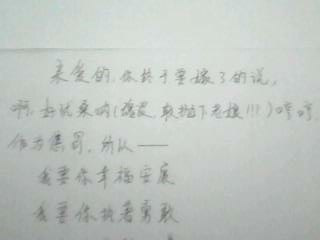 亲爱的，你终于要嫁了的说，
啊，好忧桑呐（诺，敢抛下老娘!!!）哼哼，
作为惩罚，所以——
我要你幸福安康
我要你执着勇敢